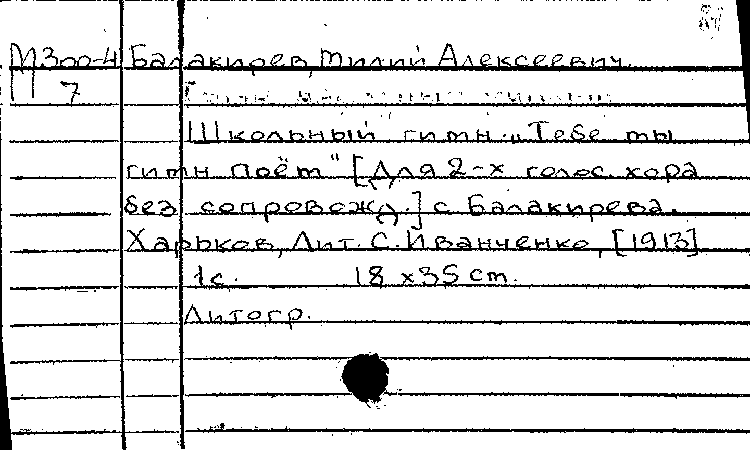 М300-4 Балакирев, Милий Алексеевич.
7
Школьный гимн „Тебе мы
гимн поём" [Для 2-х голос. хора
без сопровожд.] с Балакирева.
Харьков, Лит. С. Иванченко, [1913]
1 с. 18 x 35 cm.
Литогр.